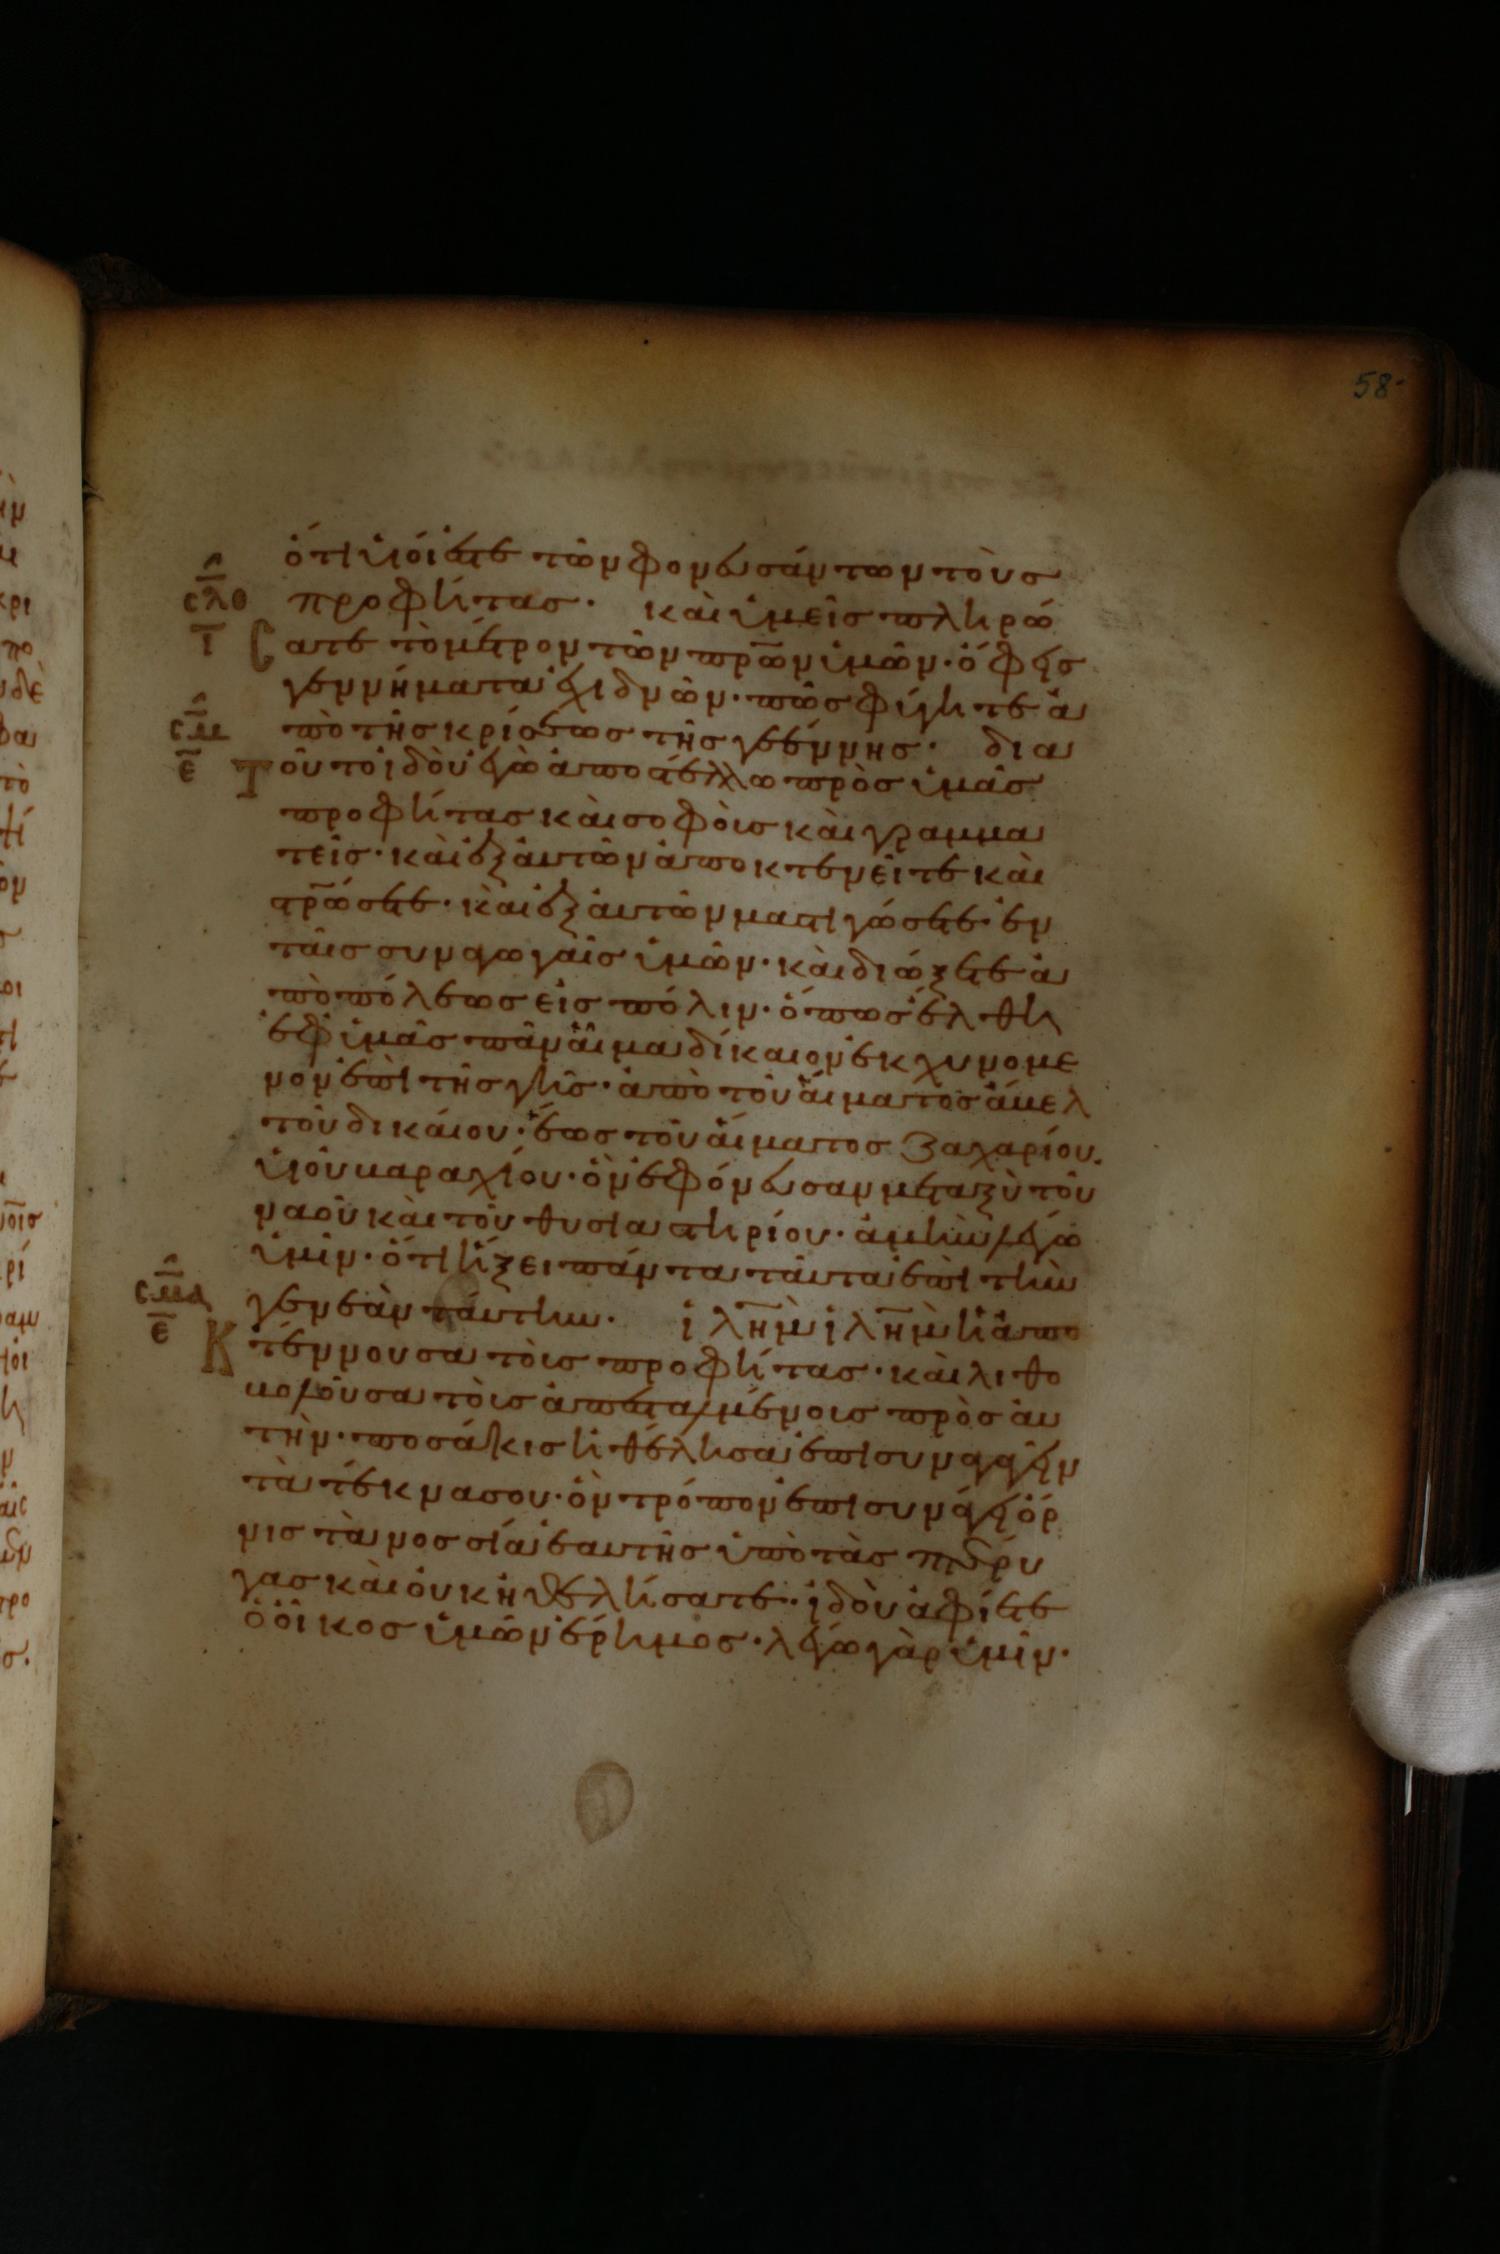 58
ὅτι υἱοί ἐστε τῶν φονευσάντων τοὺς
προφήτας. καὶ ὑμεῖς πληρώ
σατε τὸ μέτρον τῶν πρ̅ων ὑμῶν· ὄφεις
γεννήματα ἐχιδνῶν· πῶς φύγητε ἀ
πὸ τῆς κρίσεως τῆς γεέννης· δια
τοῦτο ἰδοὺ ἐγὼ ἀποστέλλω πρὸς ὑμᾶς
προφήτας καὶ σοφοὺς καὶ γραμμα
τεῖς· καὶ ἐξ αὐτῶν ἀποκτενεῖτε καὶ
στρ̅ώσετε· καὶ ἐξ αὐτῶν μαστιγώσετε ἐν
ταῖς συναγωγαῖς ὑμῶν· καὶ διώξετε ἀ
πὸ πόλεως εἰς πόλιν· ὅπως ἔλθῃ
ἐφ ὑμᾶς πᾶν αἷμα δίκαιον ἐκχυνομε
νον ἐπὶ τῆς γῆς· ἀπὸ τοῦ αἵματος ἄβελ
τοῦ δικαίου· ἕως τοῦ αἵματος Ζαχαρίου
υἱοῦ βαραχίου· ὃν ἐφόνευσαν μεταξὺ τοῦ
ναοῦ καὶ τοῦ θυσιαστηρίου· ἀμὴν λέγω
ὑμῖν· ὅτι ἥξει πάντα ταῦτα ἐπὶ τὴν
γενεὰν ταύτην. ἱλ̅ημ ἱλ̅ημ ἡ ἀπο
κτέννουσα τοὺς προφήτας· καὶ λιθο
βολοῦσα τοὺς ἀπεσταλμένους πρὸς αὐ
τήν· ποσάκις ἠθέλησα ἐπισυναγαγεῖν
τὰ τέκνα σου· ὃν τρόπον ἐπισυνάγει ὄρ
νις τὰ νοσσία ἑαυτῆς ὑπὸ τὰς πτέρυ
γας καὶ οὐκ ἠθελήσατε· ἰδοὺ ἀφίεται
ὁ οἶκος ὑμῶν ἔρημος· λέγω γὰρ ὑμῖν·
σλθ
ι
σμ
ε
σμα
ε